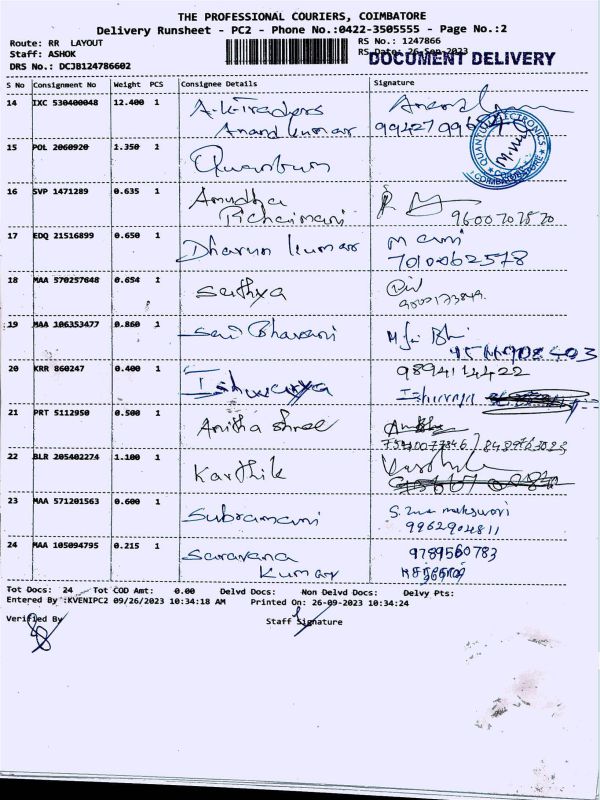 THE PROFESSIONAL COURIERS, COIMBATORE
Delivery Runsheet - PC2 - Phone No.:0422-3505555 - Page No.:2
Route: RR LAYOUT
RS No.: 1247866
Staff: ASHOK
RS Date: 26-Sep-2023
DOCUMENT DELIVERY
DRS No.: DCJB124786602
S No Consignment No Weight PCS Consignee Details Signature
14 IXC 530400048 12.400 1 A.K.Traders
Anand kumar
QUANTUM ELECTRONICS
COIMBATORE
15 POL 2060920 1.350 1
16 SVP 1471289 0.635 1 Amudha
Pichaimani 9600707870
17 EDQ 21516899 0.650 1 Dharun kumar mani
7010062578
18 MAA 570257648 0.654 1 Sathya
19 MAA 106353477 0.860 1 Sai Bhavani
20 KRR 860247 0.400 1 Ishwarya 9894144422
21 PRT 5112950 0.500 1 Anitha shree
22 BLR 205402274 1.100 1 Karthik
23 MAA 571201563 0.600 1 Subramani S. Uma maheswari
9962904811
24 MAA 105094795 0.215 1 Saravana
Kumar 9789560783
Tot Docs: 24 Tot COD Amt: 0.00 Delvd Docs: Non Delvd Docs: Delvy Pts:
Entered By :KVENIPC2 09/26/2023 10:34:18 AM Printed On: 26-09-2023 10:34:24
Verified By Staff Signature